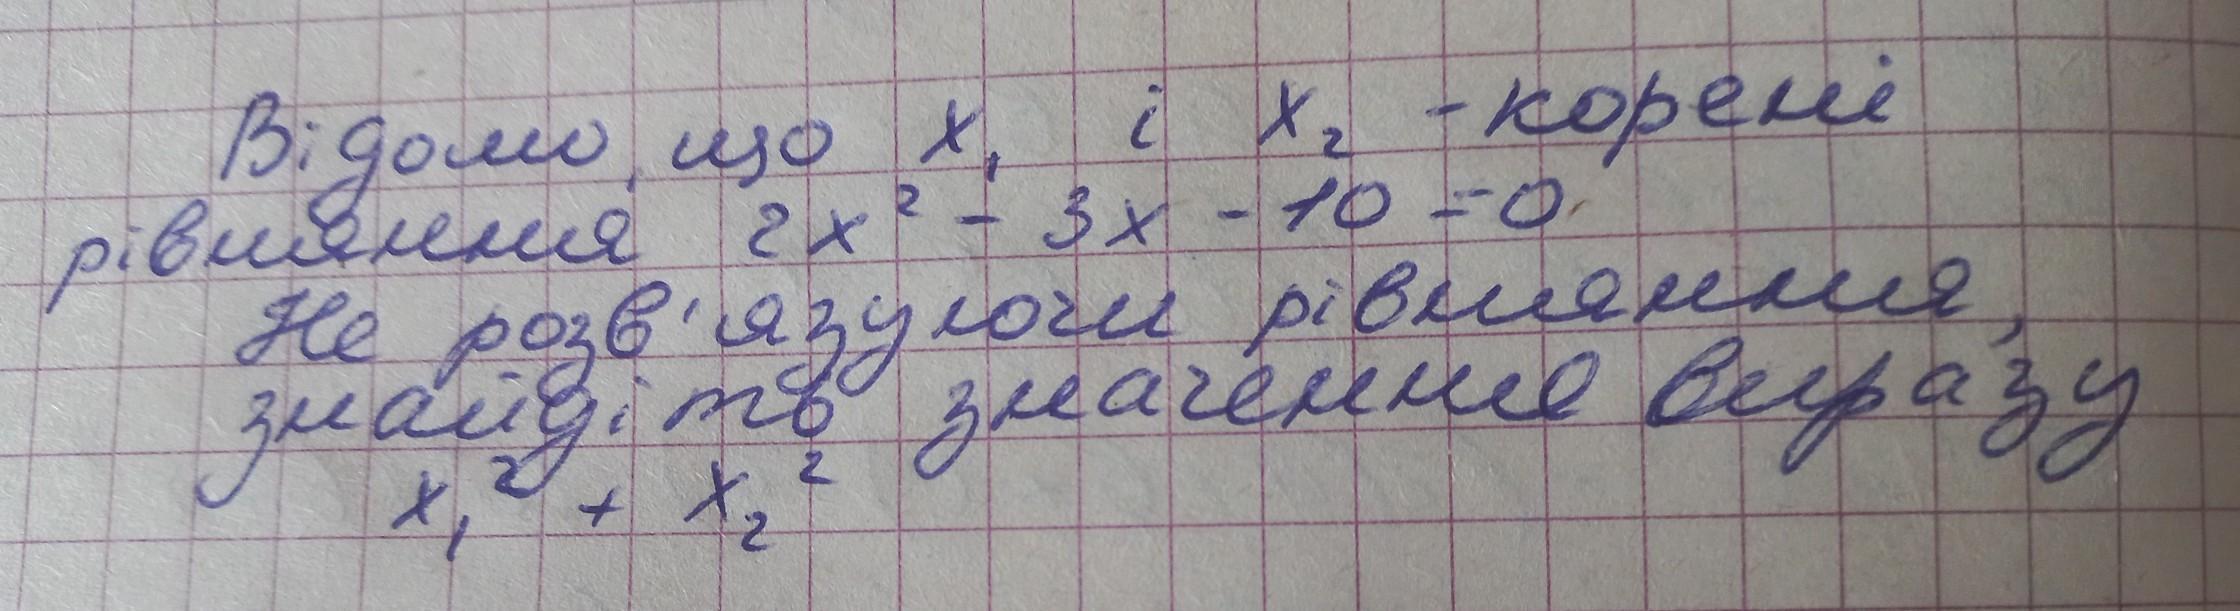 Відомо, що x₁ і x₂ - корені
рівняння 2x² - 3x - 10 = 0.
Не розв'язуючи рівняння,
знайдіть значення виразу
x₁² + x₂²